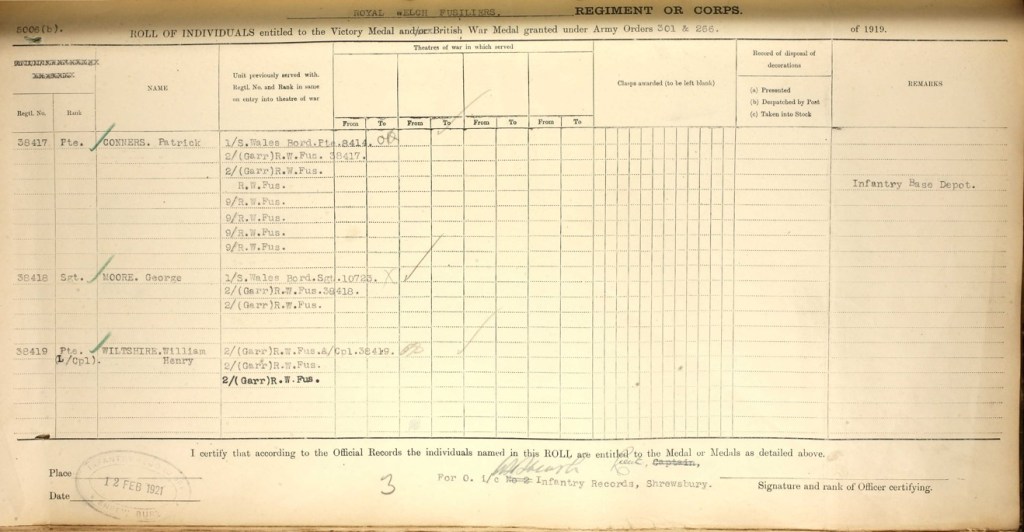 ROYAL WELCH FUSILIERS. REGIMENT OR CORPS.
5006(b). ROLL OF INDIVIDUALS entitled to the Victory Medal and/or British War Medal granted under Army Orders 301 & 266. of 1919.
Theatres of war in which served
Regtl. No.
Rank
NAME
Unit previously served with.
Regtl. No. and Rank in same
on entry into theatre of war
From To From To From To From To
Clasps awarded (to be left blank)
Record of disposal of
decorations
(a) Presented
(b) Despatched by Post
(c) Taken into Stock
REMARKS
38417 Pte. CONNERS. Patrick 1/S.Wales Bord.Pte.8414.
2/(Garr)R.W.Fus. 38417.
2/(Garr)R.W.Fus.
R.W.Fus. Infantry Base Depot.
9/R.W.Fus.
9/R.W.Fus.
9/R.W.Fus.
9/R.W.Fus.
38418 Sgt. MOORE. George 1/S.Wales Bord.Sgt.10723. X
2/(Garr)R.W.Fus.38418.
2/(Garr)R.W.Fus.
38419 Pte. WILTSHIRE.William 2/(Garr)R.W.Fus.A/Cpl.38419.
(L/Cpl). Henry 2/(Garr)R.W.Fus.
2/(Garr)R.W.Fus.
I certify that according to the Official Records the individuals named in this ROLL are entitled to the Medal or Medals as detailed above.
Place
Lieut. Captain,
12 FEB 1921
3
For O. i/c No 2 Infantry Records, Shrewsbury.
Signature and rank of Officer certifying.
Date